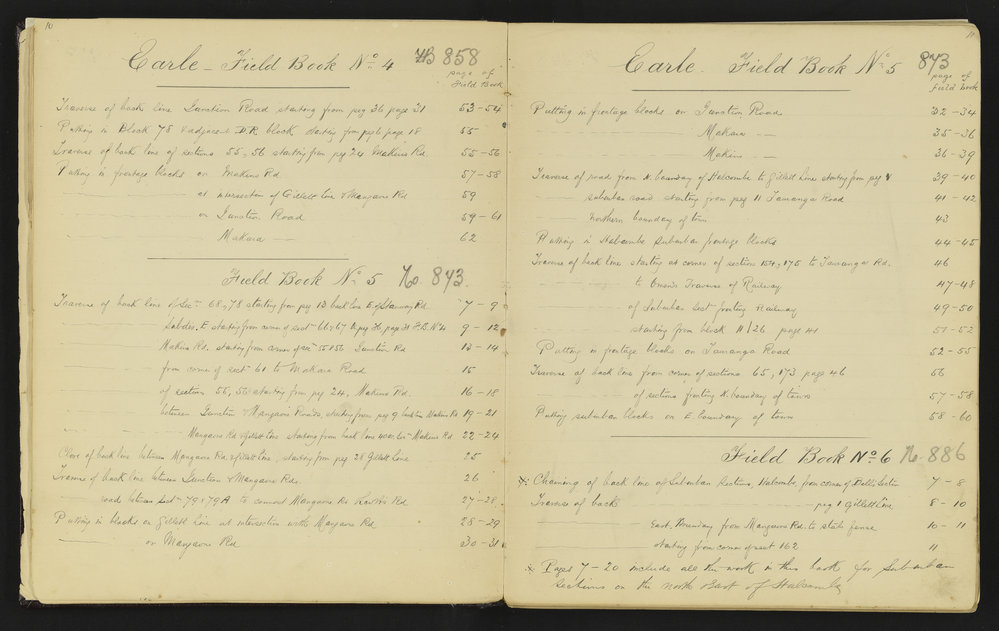 10
Earle - Field Book No 4 FB 858
page of
Field Book
Traverse of back line Junction Road starting from peg 36 page 31 53-54
Putting in Block 78 & adjacent D.R. block starting from peg 6 page 18 55
Traverse of back line of sections 55, 56 starting from peg 24 Makino Rd. 55-56
Putting in frontage blocks on Makino Rd 57-58
at intersection of Gillett Line & Mangaone Rd 59
on Junction Road 59-61
Makura 62
Field Book No 5 No 873.
Traverse of back line of Sec 68, 78 starting from peg 13 back line E of Stanway Rd. 7-9
Subdiv. E starting from corner of sect 66 & 67 & peg 36 page 31 F.B. No 4 9-12
Makino Rd. starting from corner of sec 55 & 56 Junction Rd 12-14
from corner of sect 61 to Makura Road 15
of sections 55, 56 starting from peg 24, Makino Rd. 16-18
between Junction & Mangaone Roads, starting from peg 9 back line Makino Rd 19-21
Mangaone Rd & Gillett Line starting from back line Makino Rd 22-24
Close of back line between Mangaone Rd. & Gillett Line, starting from peg 28 Gillett Line 25
Traverse of back line between Junction & Mangaone Rds. 26
road between Sect 79 & 79A to connect Mangaone Rd 27-28
Putting in blocks on Gillett Line at intersection with Mangaone Rd 28-29
on Mangaone Rd 30-31
11
Earle. Field Book No 5 873
page of
Field book
Putting in frontage blocks on Junction Road 32-34
Makura 35-36
Makino 36-39
Traverse of road from N. boundary of Halcombe to Gillett Line starting from peg 39-40
suburban road starting from peg 11 Tauranga Road 41-42
Northern boundary of town 43
Putting in Halcombe Suburban frontage blocks 44-45
Traverse of back line starting at corner of sections 154, 175 to Tauranga Rd. 46
to Traverse of Railway 47-48
of Suburban Sect fronting Railway 49-50
starting from block 11/26 page 41 51-52
Putting in frontage blocks on Tauranga Road 52-55
Traverse of back line from corner of sections 65, 173 page 46 56
of sections fronting N. boundary of town 57-58
Putting suburban blocks on E. boundary of town 58-60
Field Book No 6 No 886
Chaining of back line of Suburban Sections, Halcombe from corner of Section 7-8
Traverse of back peg 1 Gillett Line 8-10
East Boundary from Mangaone Rd. to fence 10-11
starting from corner of sect 162 11
Pages 7-20 include all the work in this book for Suburban
sections on the North East of Halcombe